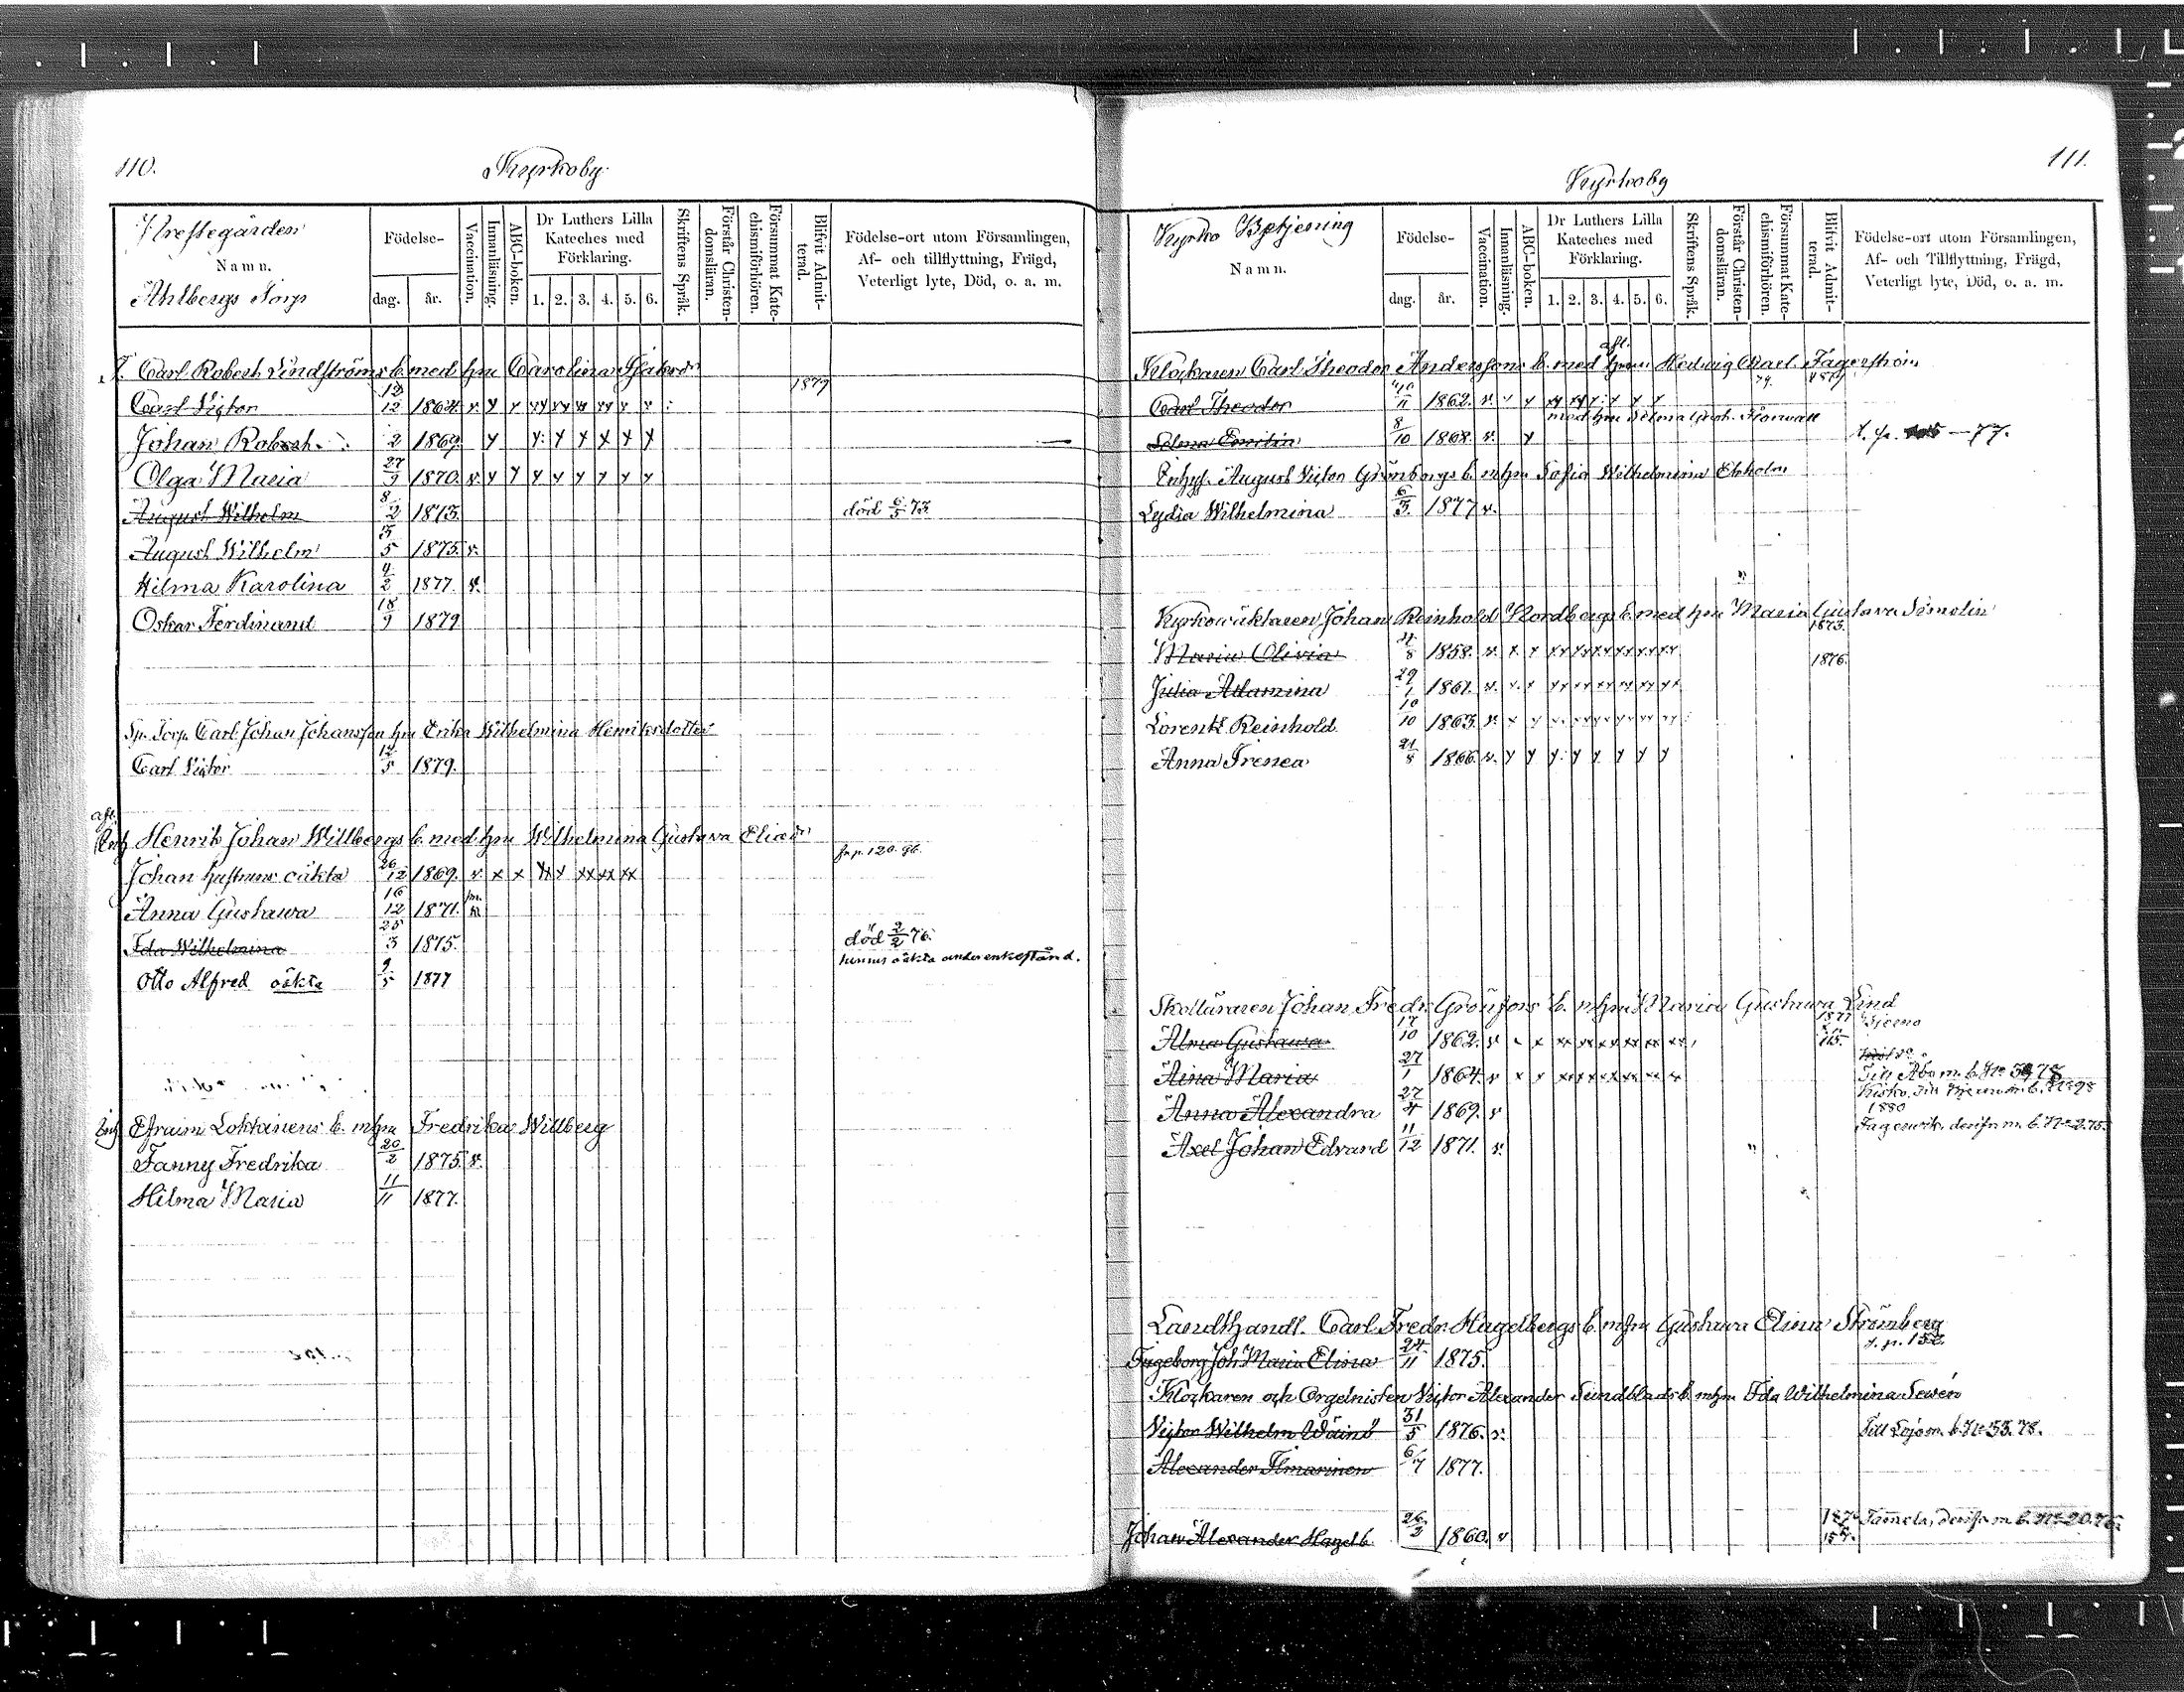 110.
Kyrkoby
Prestegården
Namn.
Ahlbergs Torp
Födelse-
dag.
år.
Vaccination.
Innanläsning.
ABC-boken.
Dr Luthers Lilla
Kateches med
Förklaring.
1. 2. 3. 4. 5. 6.
Skriftens Språk.
Förstår Christen-
domsläran.
Försummat Kate-
chismiförhören.
Blifvit Admit-
terad.
Födelse-ort utom Församlingen,
Af- och tillflyttning, Frägd,
Veterligt lyte, Död, o. a. m.
T. Carl Robert Lindströms b. med hu Carolina
Carl Victor 12/12 1864. v x x xx xx xx xx x x 1879
Johan Robert 2 1869 x x x x x x x
Olga Maria 27/9 1870. v x x x x x x x x
August Wilhelm 8/2 1873. död 6/5 73
August Wilhelm 5 1875. v.
Hilma Karolina 4/2 1877. v.
Oskar Ferdinand 18/9 1879
Sp. Torp. Carl Johan Johansson hu Erika Wilhelmina Henriksdotter
Carl Victor 12/5 1879.
afl.
Henrik Johan Willbergs b. med hu Wilhelmina Gustava
fr. p. 120. 96.
Johan hustruns oäkta 26/12 1869. v x x xx x xx xx xx
Anna Gustawa 16/12 1871.
Ida Wilhelmina 25/3 1875. död 2/2 76.
hennes oäkta under enkestånd.
Otto Alfred oäkta 9/5 1877
Inh Efraim Loktanens b. m hu Fredrika Willberg
Fanny Fredrika 20/2 1875. v.
Hilma Maria 11/11 1877.
111.
Kyrkoby
Kyrko Betjening
Namn.
Födelse-
dag.
år.
Vaccination.
Innanläsning.
ABC-boken.
Dr Luthers Lilla
Kateches med
Förklaring.
1. 2. 3. 4. 5. 6.
Skriftens Språk.
Förstår Christen-
domsläran.
Försummat Kate-
chismiförhören.
Blifvit Admit-
terad.
Födelse-ort utom Församlingen,
Af- och Tillflyttning, Frägd,
Veterligt lyte, Död, o. a. m.
afl.
Klockaren Carl Theodor Anderssons b. med hu Hedvig Fagerström
Carl Theodor 11 1862. v. x x xx xx x x x x
med hu Selma
Selma Emilia 8/10 1868. v. x 77.
Inhys. August Victor Grönbergs b. m hu Sofia Wilhelmina Ekholm
Lydia Wilhelmina 6/3 1877 v.
Kyrkowäktaren Johan Reinhold Nordbergs b. med hu Maria Gustava Simolin
1873.
Maria Olivia 8 1858. v. x. x xx xx xx xx xx xx
1876.
Julia Adamina 29/1 1861. v. x. x xx xx xx xx xx xx
Lorentz Reinhold 10/10 1863. v. x x xx xx xx xx xx xx
Anna Irenea 21/8 1866. v. x x x x x x x x
Skolläraren Johan Fredr. Grönfors b. m hu Maria Gustawa Lind
1877
Alma Gustawa 17/10 1862. v x x xx xx xx xx xx xx
Aina Maria 27/1 1864. v x x xx xx xx xx xx x
Till Åbo m. b. No 59 78
Anna Alexandra 27/4 1869. v
1880
Axel Johan Edvard 11/12 1871. v.
Landthandl. Carl Fredr. Hagelbergs b. m hu Gustava Elina Strömberg
Ingeborg Joh. Maria Elisa 24/11 1875.
Klockaren och Orgelnisten Victor Alexander Sundblads b. m hu Ida Wilhelmina Sevén
Victor Wilhelm Wäinö 31/5 1876. v. Till Lojo m. b. No 55. 78.
Alexander Ilmarinen 6/7 1877.
Johan Alexander Hagelb. 26/2 1860. v